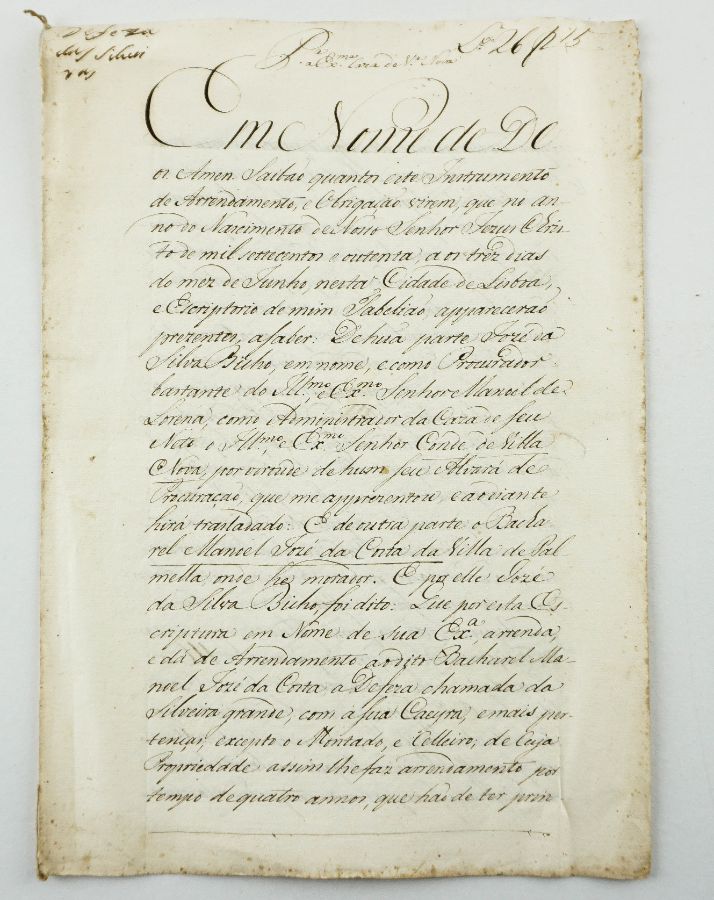 Defeza
das Silvei
ras
Pa. a Exma. Caza de Va. Nova
Lo. 26 f 15
Em Nome de De
os Amen. Saibão quantos este Instrumento
de Arrendamento, e Obrigação virem, que no an-
no do Nascimento de Nosso Senhor Jezus Chris-
to de mil settecentos e outenta, aos trez dias
do mez de Junho, nesta Cidade de Lisboa,
e Escriptorio de mim Tabelião, apparecerão
prezentes, a saber: De hũa parte Jozé da
Silva Bicho, em nome, e como Procurador
bastante do Illmo. e Exmo. Senhor Manoel de
Lorena, como Administrador da Caza de seu
Neto o Illmo. e Exmo. Senhor Conde de Villa
Nova, por virtude de hum seu Alvará de
Procuração, que me apprezentou, e ao diante
hirá trasladado: E de outra parte o Bacha-
rel Manoel Jozé da Costa da Villa de Pal
mella, onde he morador. E por elle Jozé
da Silva Bicho, foi dito: Que por esta Es-
criptura em Nome de sua Exa. arrenda,
e dá de Arrendamento ao dito Bacharel Ma-
noel Jozé da Costa a Defeza chamada da
Silveira grande, com a sua Caeyra, e mais per-
tenças, excepto o Montado, e Celleiro; de cuja
Propriedade assim lhe faz arrendamento por
tempo de quatro annos, que hão de ter prin